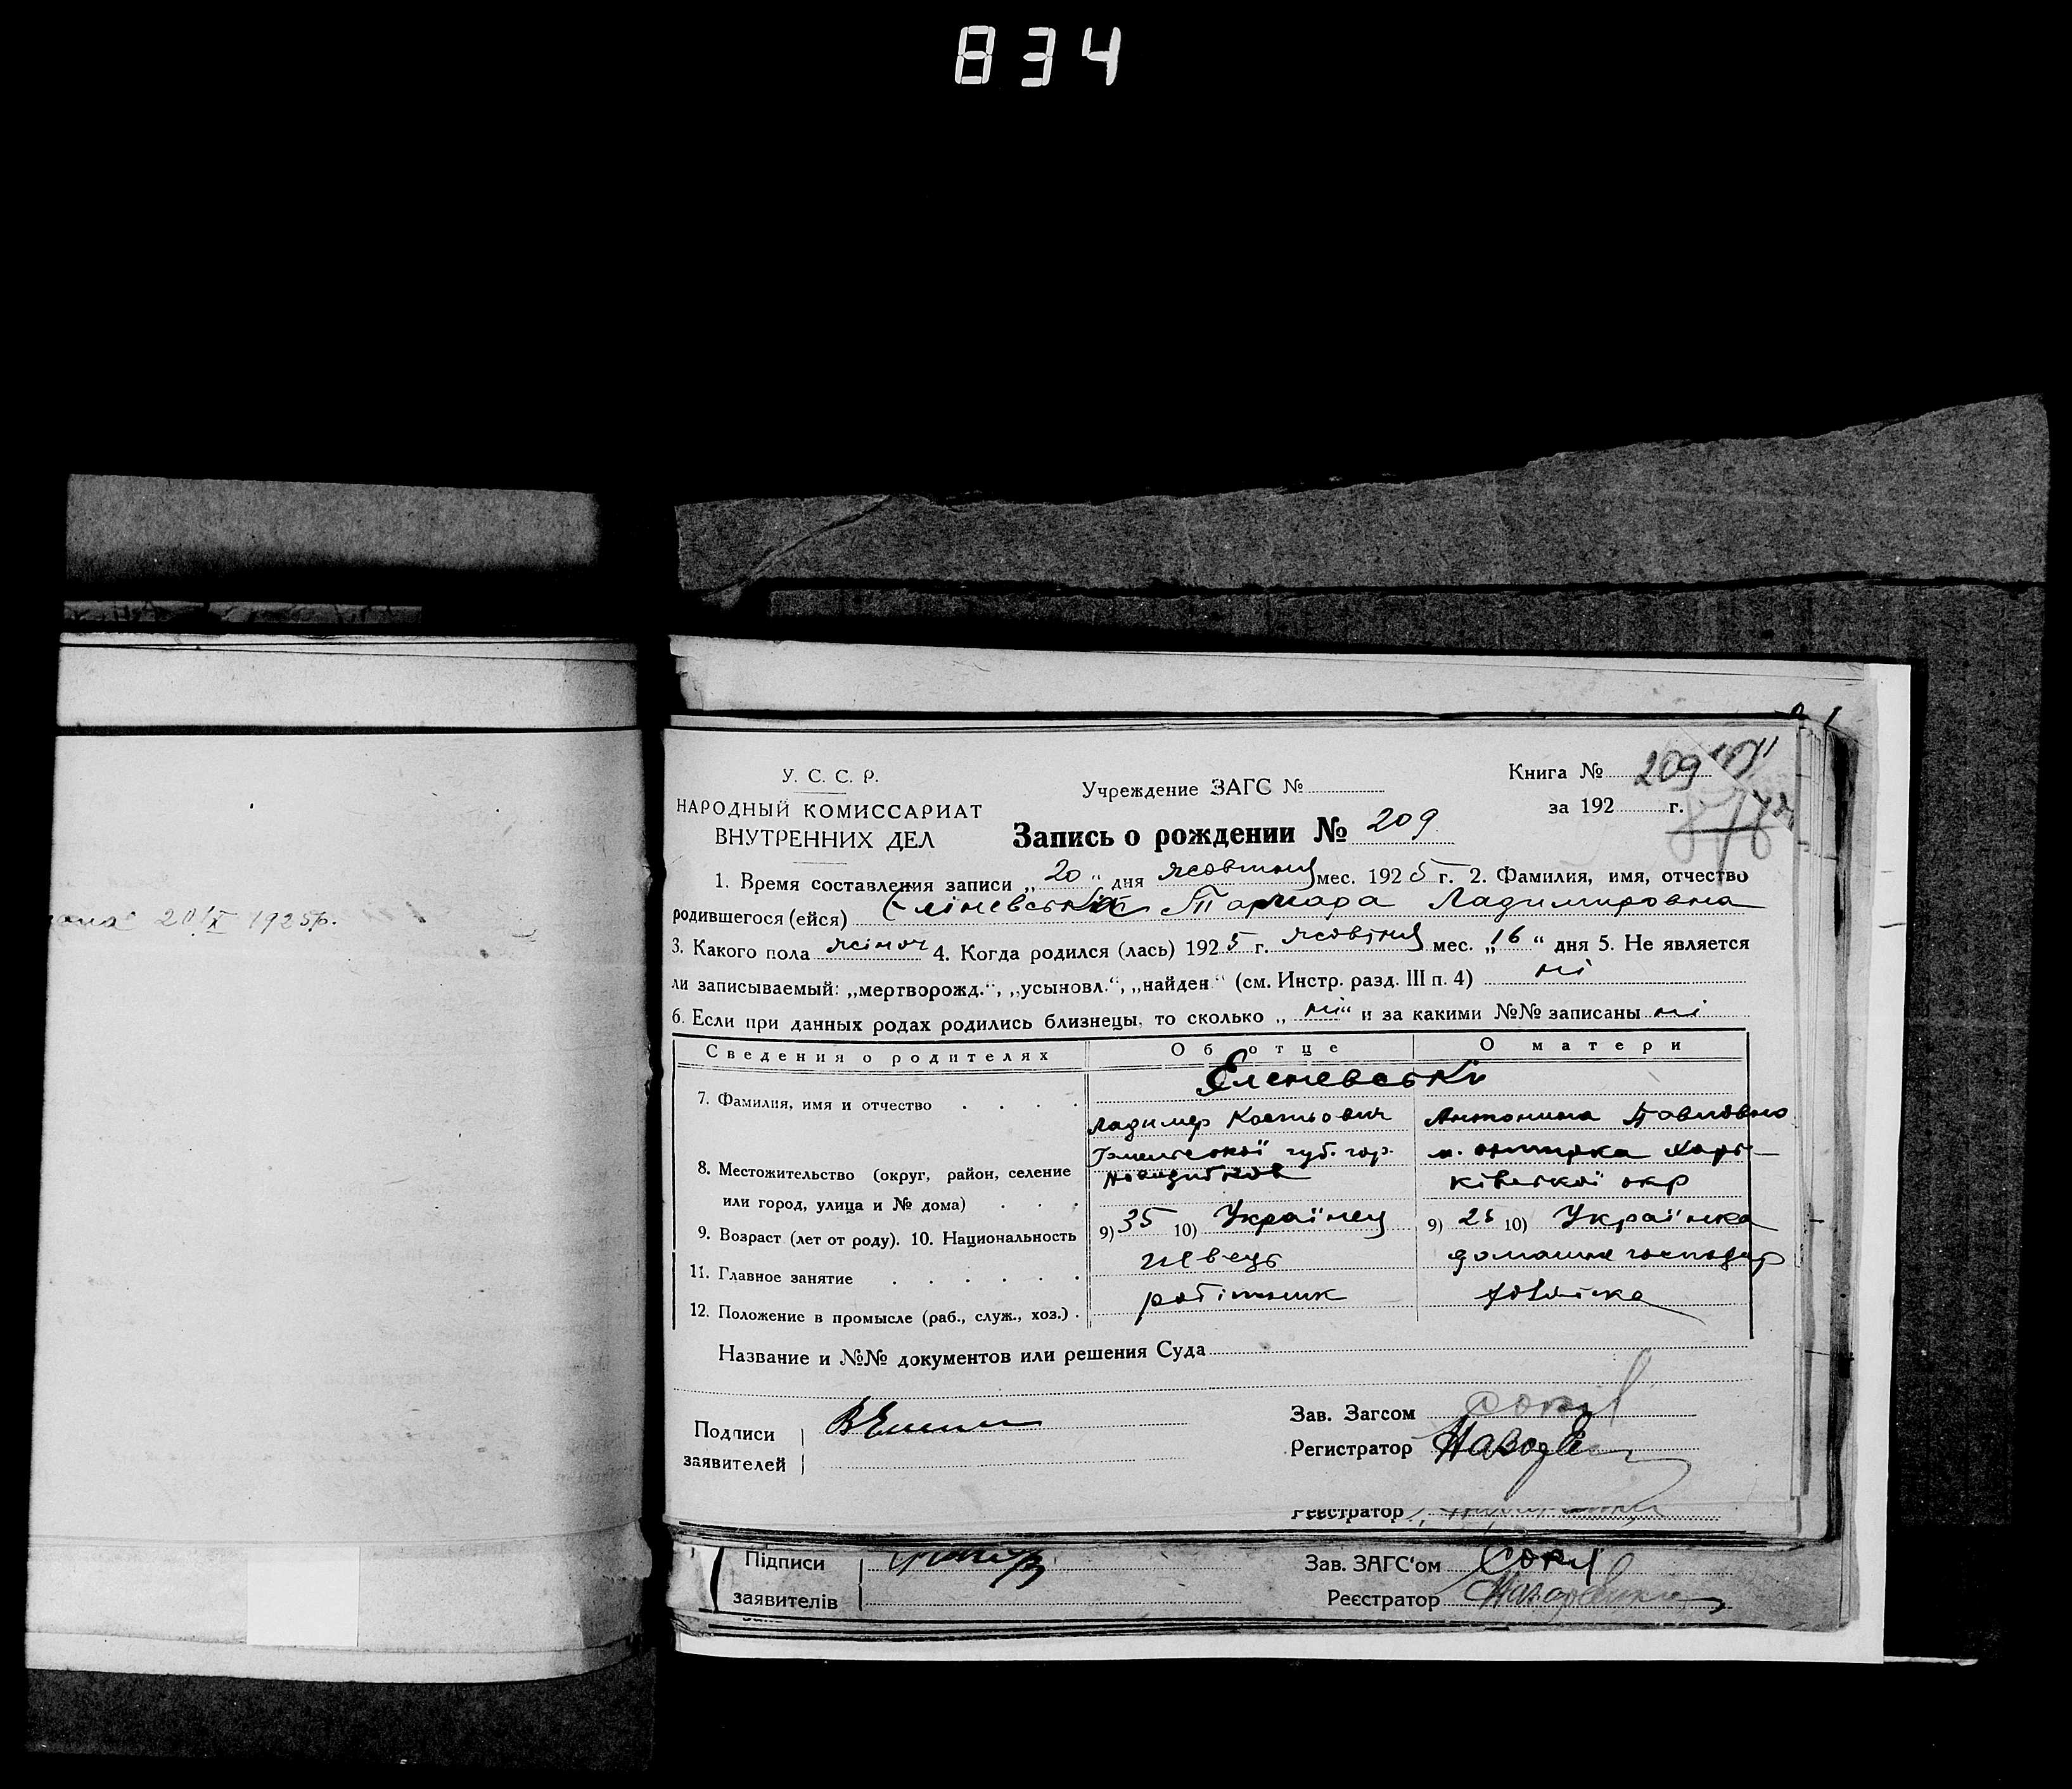 834
У. С. С. Р.
НАРОДНЫЙ КОМИССАРИАТ
ВНУТРЕННИХ ДЕЛ
Учреждение ЗАГС №
Книга № 209
за 192 г.
Запись о рождении № 209
1. Время составления записи „20“ дня жовтня мес. 1925 г. 2. Фамилия, имя, отчество
родившегося (ейся) Тамара Ладимировна
3. Какого пола жіноч 4. Когда родился (лась) 1925 г. жовтня мес. „16“ дня 5. Не является
ли записываемый: „мертворожд.“, „усыновл.“, „найден“ (см. Инстр. разд. III п. 4) ні
6. Если при данных родах родились близнецы, то сколько „ні“ и за какими №№ записаны ні
Сведения о родителях Об отце О матери
Еленевські
7. Фамилия, имя и отчество . . . .
Ладимер Костьович Антонина Павловна
8. Местожительство (округ, район, селение
или город, улица и № дома) . . .
Гомельскої губ. гор. Новозибков
м. Охтирка Харь-
ківської окр
9. Возраст (лет от роду). 10. Национальность 9) 35 10) Українец 9) 25 10) Українка
11. Главное занятие . . . . . . швець домашнє господар
12. Положение в промысле (раб., служ., хоз.) . робітник
Название и №№ документов или решения Суда
Подписи
заявителей
Зав. Загсом
Регистратор
Реєстратор
Підписи
заявителів
Зав. ЗАГС'ом
Реєстратор
20/X 1925р.